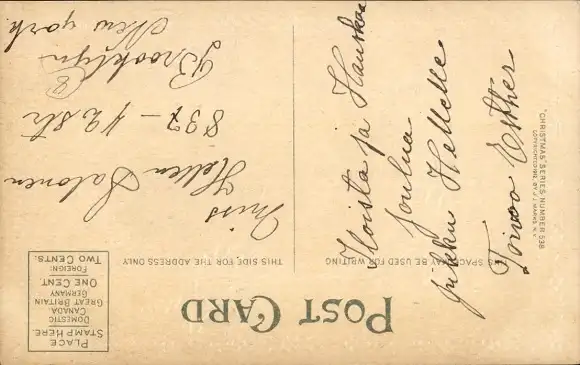 POST CARD
THIS SPACE MAY BE USED FOR WRITING
THIS SIDE FOR THE ADDRESS ONLY
PLACE
STAMP HERE
DOMESTIC
CANADA
GREAT BRITAIN
GERMANY
ONE CENT.
FOREIGN:
TWO CENTS.
Miss
Hellen Salonen
837 – 42 Str
Brooklyn
8
New york
Iloista ja Hauskaa
Joulua
Hellelle
Toivoo Esther
"CHRISTMAS" SERIES NUMBER 538